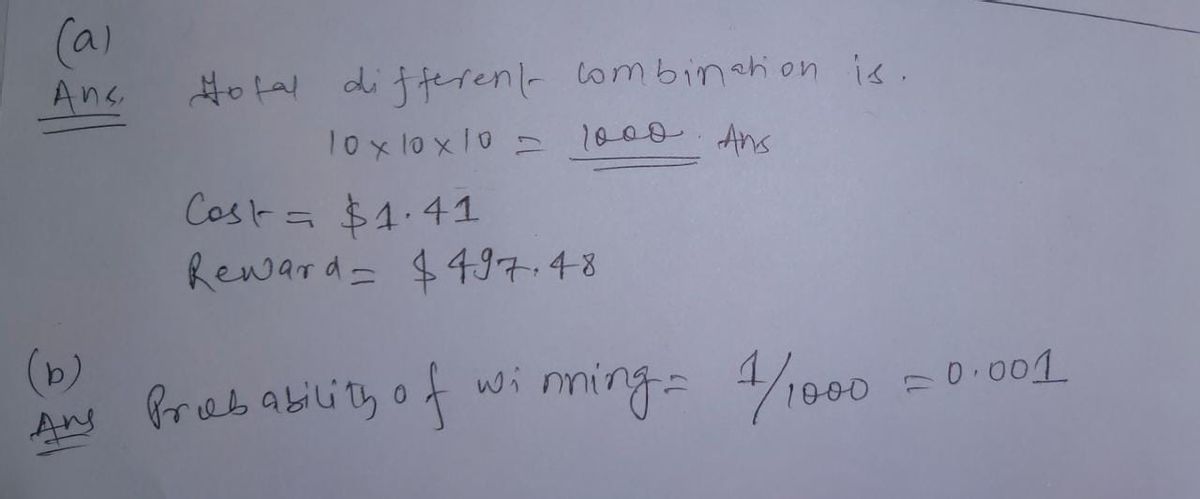 (a)
Ans. Total different combination is.
10 x 10 x 10 = 1000. Ans
Cost = $1.41
Reward = $497.48
(b)
Ans Probability of winning = 1/1000 = 0.001